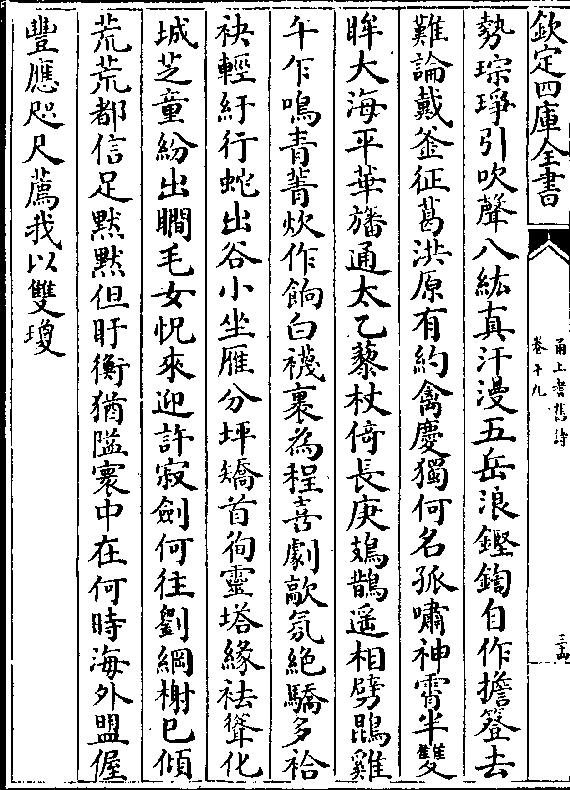 欽定四庫全書
甬上耆舊詩
卷十九
勢琮琤引吹聲八紘真汗漫五岳浪鏗鍧自作擔簦去
難論戴釜征葛洪原有約禽慶獨何名孤嘯神霄半雙
眸大海平華旛通太乙藜杖倚長庚鴂鵲遥相劈鵾雞
午乍鳴青菁炊作餉白襪裹為程喜劇歊氛絶驕多袷
袂輕紆行蛇出谷小坐雁分坪矯首徇靈塔緣袪聳化
城芝童紛出瞯毛女怳來迎許寂劍何往劉綱榭已傾
荒荒都信足黙黙但盱衡猶隘寰中在何時海外盟偓
豐應咫尺薦我以雙瓊